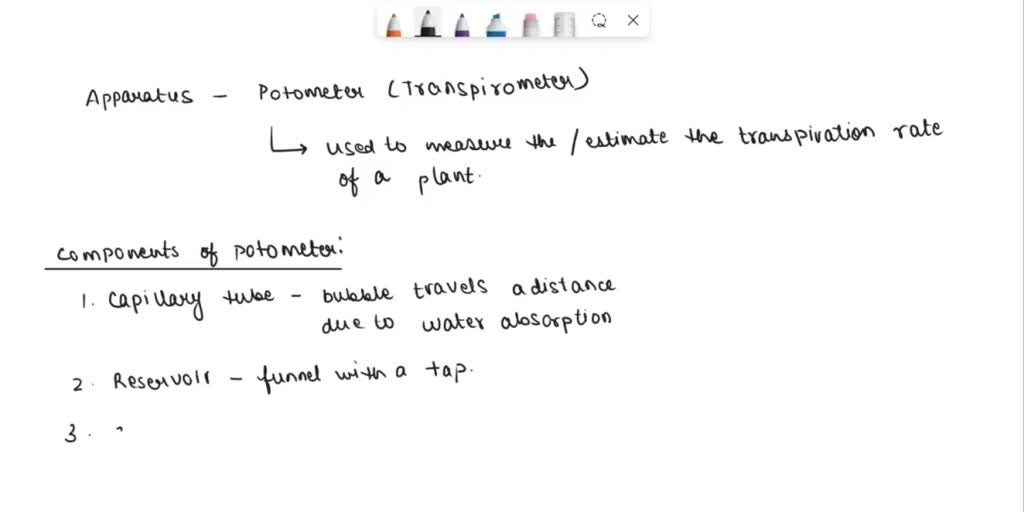 Apparatus - Potometer (Transpirometer)
↳ used to measure the / estimate the transpiration rate
of a plant.
components of potometer:
1. Capillary tube - bubble travels a distance
due to water absorption
2. Reservoir - funnel with a tap.
3.